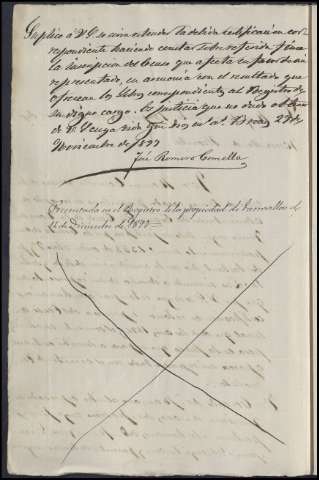 Suplico á V.S. se sirva estender la debida certificacion cor-
respondiente haciendo constar sobre referida finca
la inscripcion del Censo que afecta en favor de mi
representado, en armonia con el resultado que
ofrezcan los Libros correspondientes al Registro de
su digno cargo. Es justicia que no dudo al
de V. cuya vida gue Dios m.s a.s 27 de
Noviembre de 1877
José Romero Comella
Presentada en el Registro de la propiedad de
de Diciembre de 1877